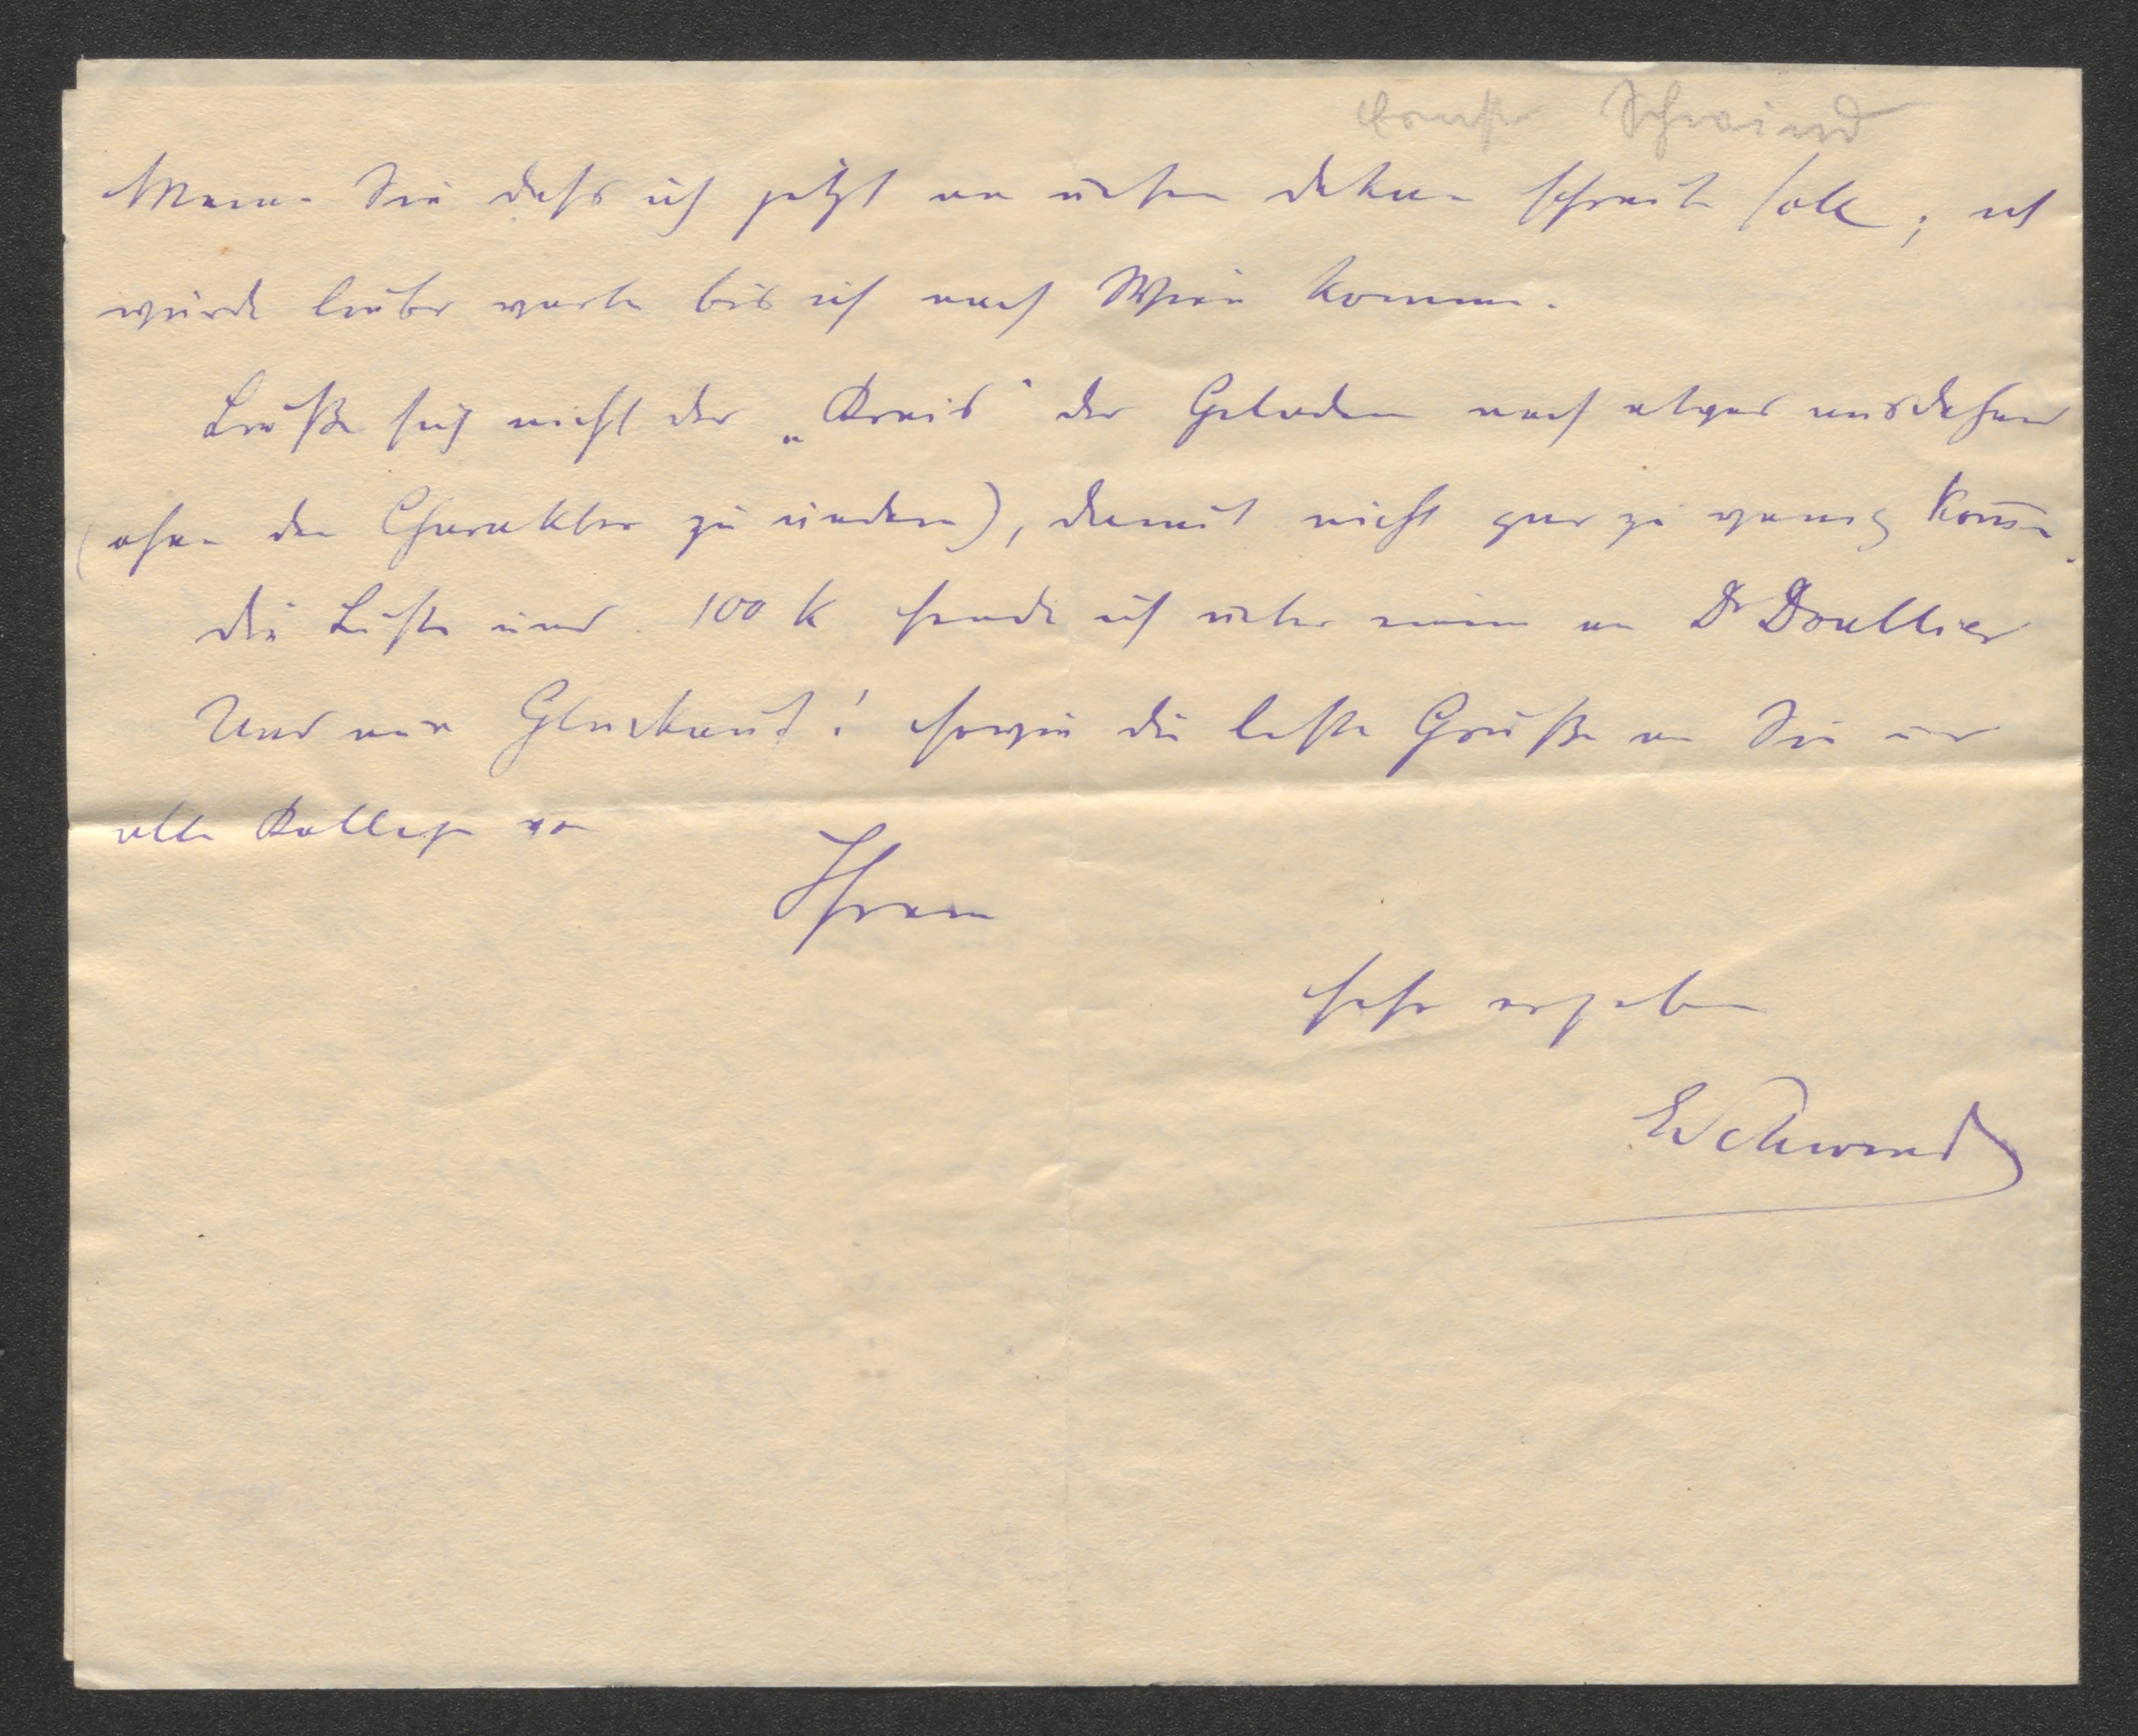 Ernst Schwind
Meinen Sie dass ich jetzt an unsern Dekan schreiben soll; ich
würde lieber warten bis ich nach Wien komme.
Ließe sich nicht der „Kreis“ der Geladenen noch etwas ausdehnen
(ohne den Charakter zu ändern), damit nicht gar zu wenig kommen.
die Liste und 100 K sende ich unter einem an Dr Doublier
Und nun Glückauf! sowie die besten Grüße an Sie und
alle Kollegen von
Ihrem
sehr ergebenen
ESchwind